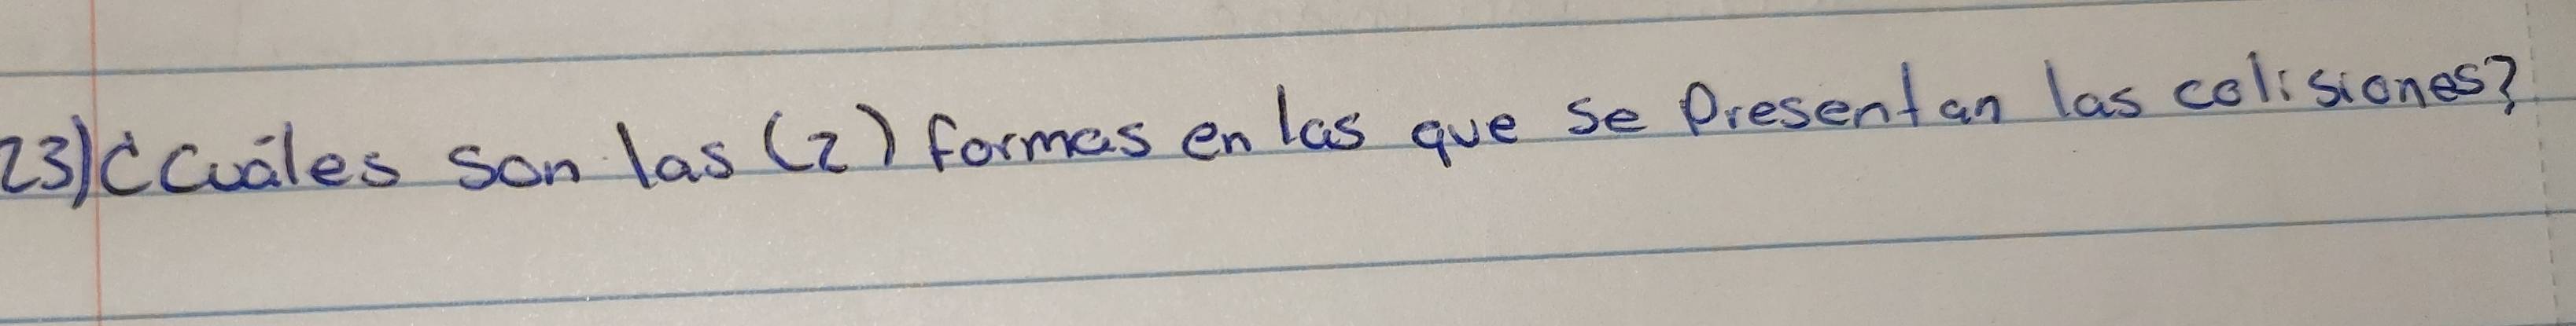 23)¿Cuáles son las (2) formas en las que se Presentan las colisiones?